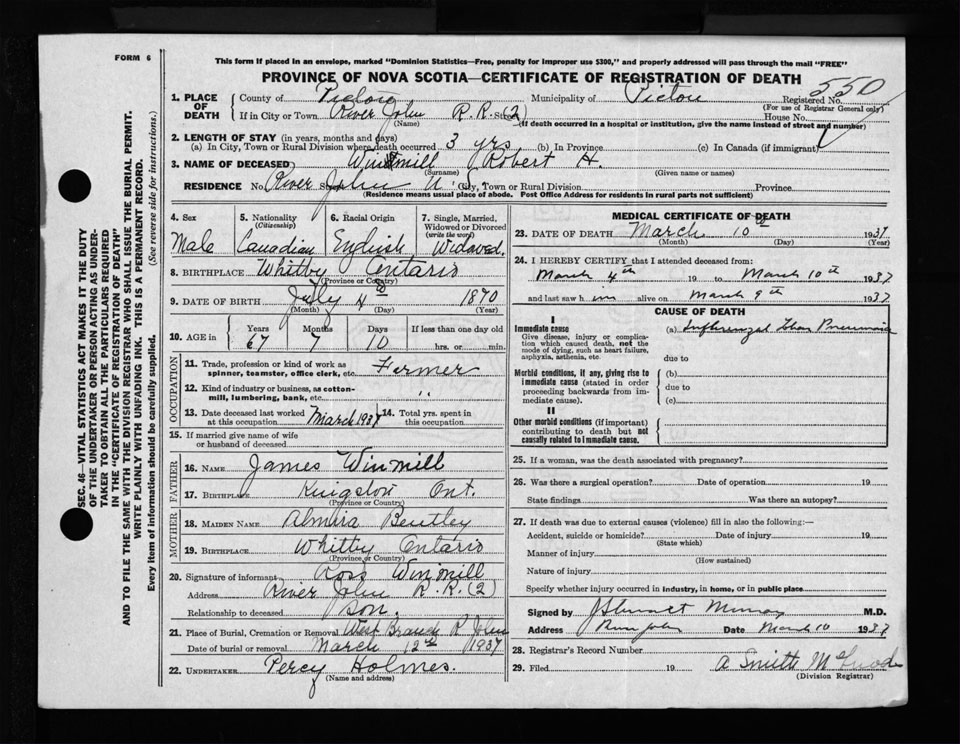 FORM 6
This form if placed in an envelope, marked "Dominion Statistics—Free, penalty for improper use $300," and properly addressed will pass through the mail "FREE"
PROVINCE OF NOVA SCOTIA—CERTIFICATE OF REGISTRATION OF DEATH
550
1. PLACE OF DEATH County of Pictou Municipality of Pictou Registered No.
(For use of Registrar General only)
If in City or Town River John R.R. (2) Street House No.
(Name) (If death occurred in a hospital or institution, give the name instead of street and number)
2. LENGTH OF STAY (in years, months and days)
(a) In City, Town or Rural Division where death occurred 3 yrs (b) In Province (c) In Canada (if immigrant)
3. NAME OF DECEASED Winmill Robert H.
(Surname) (Given name or names)
RESIDENCE No. River John City, Town or Rural Division Province
(Residence means usual place of abode. Post Office Address for residents in rural parts not sufficient)
4. Sex Male
5. Nationality (Citizenship) Canadian
6. Racial Origin English
7. Single, Married, Widowed or Divorced (write the word) Widowed.
8. BIRTHPLACE Whitby Ontario
(Province or Country)
9. DATE OF BIRTH July 4th 1870
(Month) (Day) (Year)
10. AGE in Years Months Days If less than one day old
67 7 10 hrs. or min.
OCCUPATION
11. Trade, profession or kind of work as spinner, teamster, office clerk, etc. Farmer
12. Kind of industry or business, as cotton-mill, lumbering, bank, etc. "
13. Date deceased last worked at this occupation March 1937 14. Total yrs. spent in this occupation
15. If married give name of wife or husband of deceased
FATHER
16. NAME James Winmill
17. BIRTHPLACE Kingston Ont.
(Province or Country)
MOTHER
18. MAIDEN NAME Almira Bentley
19. BIRTHPLACE Whitby Ontario
(Province or Country)
20. Signature of informant Ross Winmill
Address River John R.R. (2)
Relationship to deceased Son.
21. Place of Burial, Cremation or Removal West Branch R. John
Date of burial or removal March 12th 1937
22. UNDERTAKER Percy Holmes.
(Name and address)
MEDICAL CERTIFICATE OF DEATH
23. DATE OF DEATH March 10th 1937
(Month) (Day) (Year)
24. I HEREBY CERTIFY that I attended deceased from:
March 4th 19 to March 10th 1937
and last saw him alive on March 9th 1937
CAUSE OF DEATH
I
Immediate cause
Give disease, injury or complication which caused death, not the mode of dying, such as heart failure, asphyxia, asthenia, etc.
(a) Influenzal Pneumonia
due to
Morbid conditions, if any, giving rise to immediate cause (stated in order proceeding backwards from immediate cause).
(b)
due to
(c)
II
Other morbid conditions (if important) contributing to death but not causally related to immediate cause.
25. If a woman, was the death associated with pregnancy?
26. Was there a surgical operation? Date of operation 19
State findings Was there an autopsy?
27. If death was due to external causes (violence) fill in also the following:—
Accident, suicide or homicide? Date of injury 19
(State which)
Manner of injury
(How sustained)
Nature of injury
Specify whether injury occurred in industry, in home, or in public place
Signed by Murray M.D.
Address River John Date March 10 1937
28. Registrar's Record Number
29. Filed 19 A Smith
(Division Registrar)
SEC. 46—VITAL STATISTICS ACT MAKES IT THE DUTY
OF THE UNDERTAKER OR PERSON ACTING AS UNDER-
TAKER TO OBTAIN ALL THE PARTICULARS REQUIRED
IN THE "CERTIFICATE OF REGISTRATION OF DEATH"
AND TO FILE THE SAME WITH THE DIVISION REGISTRAR WHO SHALL ISSUE THE BURIAL PERMIT.
WRITE PLAINLY WITH UNFADING INK. THIS IS A PERMANENT RECORD.
Every item of information should be carefully supplied. (See reverse side for instructions.)